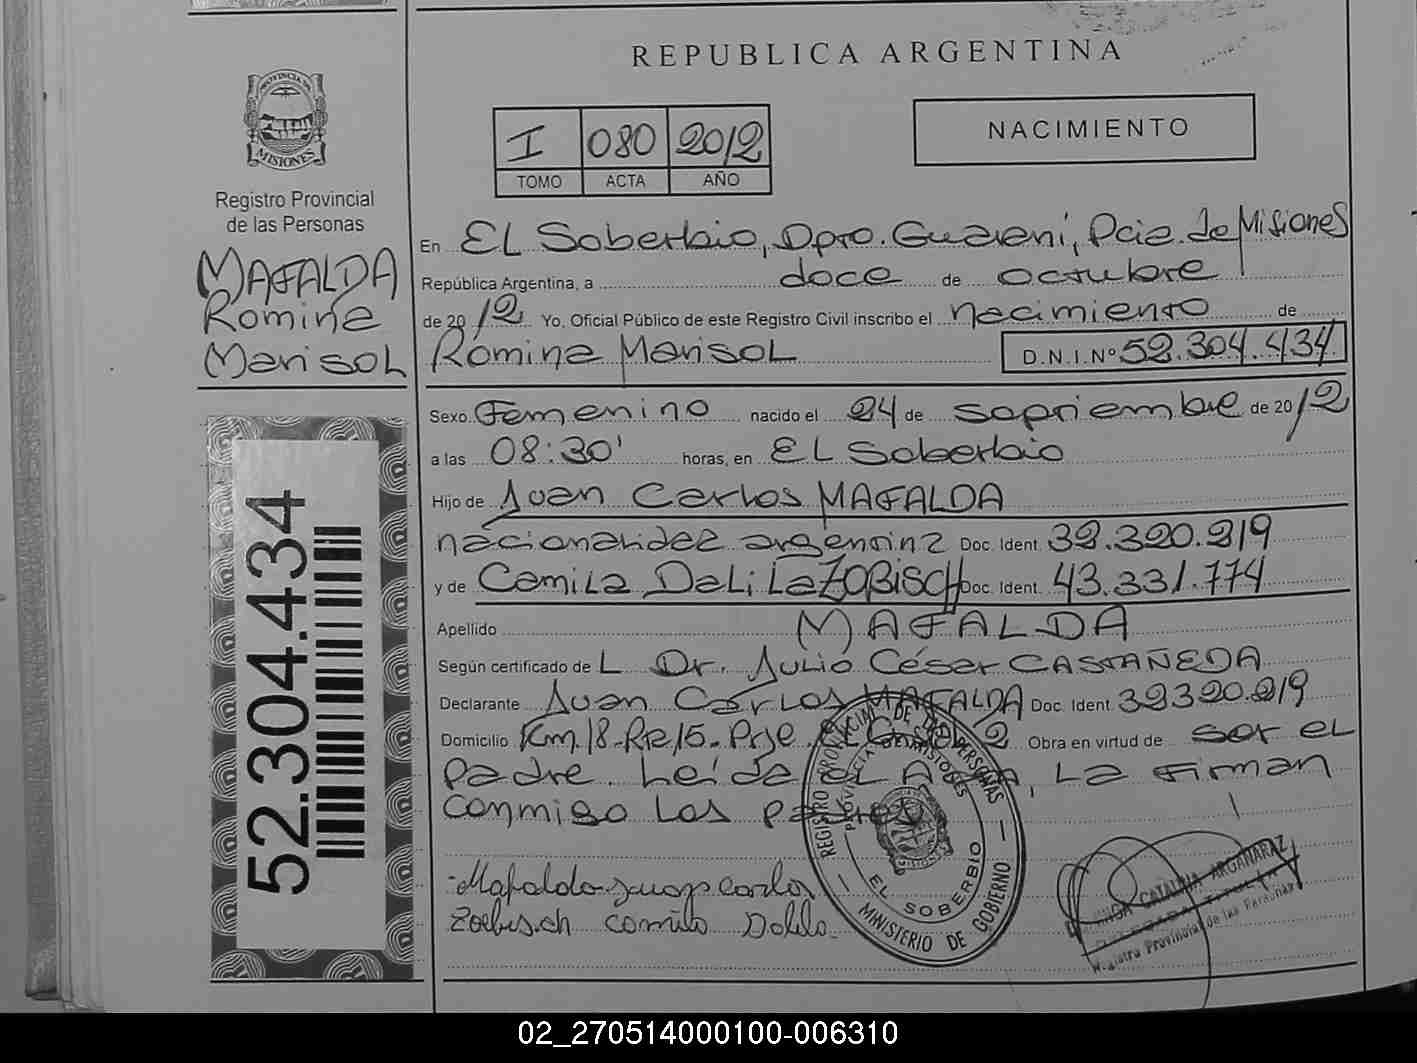 REPUBLICA ARGENTINA
PROVINCIA DE MISIONES
Registro Provincial
de las Personas
MAFALDA
Romina
Marisol
52.304.434
I 080 2012
TOMO ACTA AÑO
NACIMIENTO
En EL Soberbio, Dpto. Guaraní, Pcia. de Misiones
República Argentina, a doce de octubre
de 2012 Yo, Oficial Público de este Registro Civil inscribo el nacimiento de
Romina Marisol D.N.I.Nº 52.304.434
Sexo Femenino nacido el 24 de septiembre de 2012
a las 08:30' horas, en EL Soberbio
Hijo de Juan Carlos MAFALDA
nacionalidad argentina Doc. Ident. 32.320.219
y de Camila Dalila ZOBISCH Doc. Ident. 43.331.774
Apellido MAFALDA
Según certificado de L Dr. Julio César CASTAÑEDA
Declarante Juan Carlos MAFALDA Doc. Ident. 32320.219
Domicilio Km.18-R.P.15-Pje. 2 Obra en virtud de ser el
padre. Leída el Acta, La firman
conmigo los padres
Mafalda Juan carlos
Zobisch Camila Dalila
REGISTRO PROVINCIAL DE LAS PERSONAS
PROVINCIA DE MISIONES
EL SOBERBIO
MINISTERIO DE GOBIERNO
CATALINA ARGAÑARAZ
Registro Provincial de las Personas
02_270514000100-006310